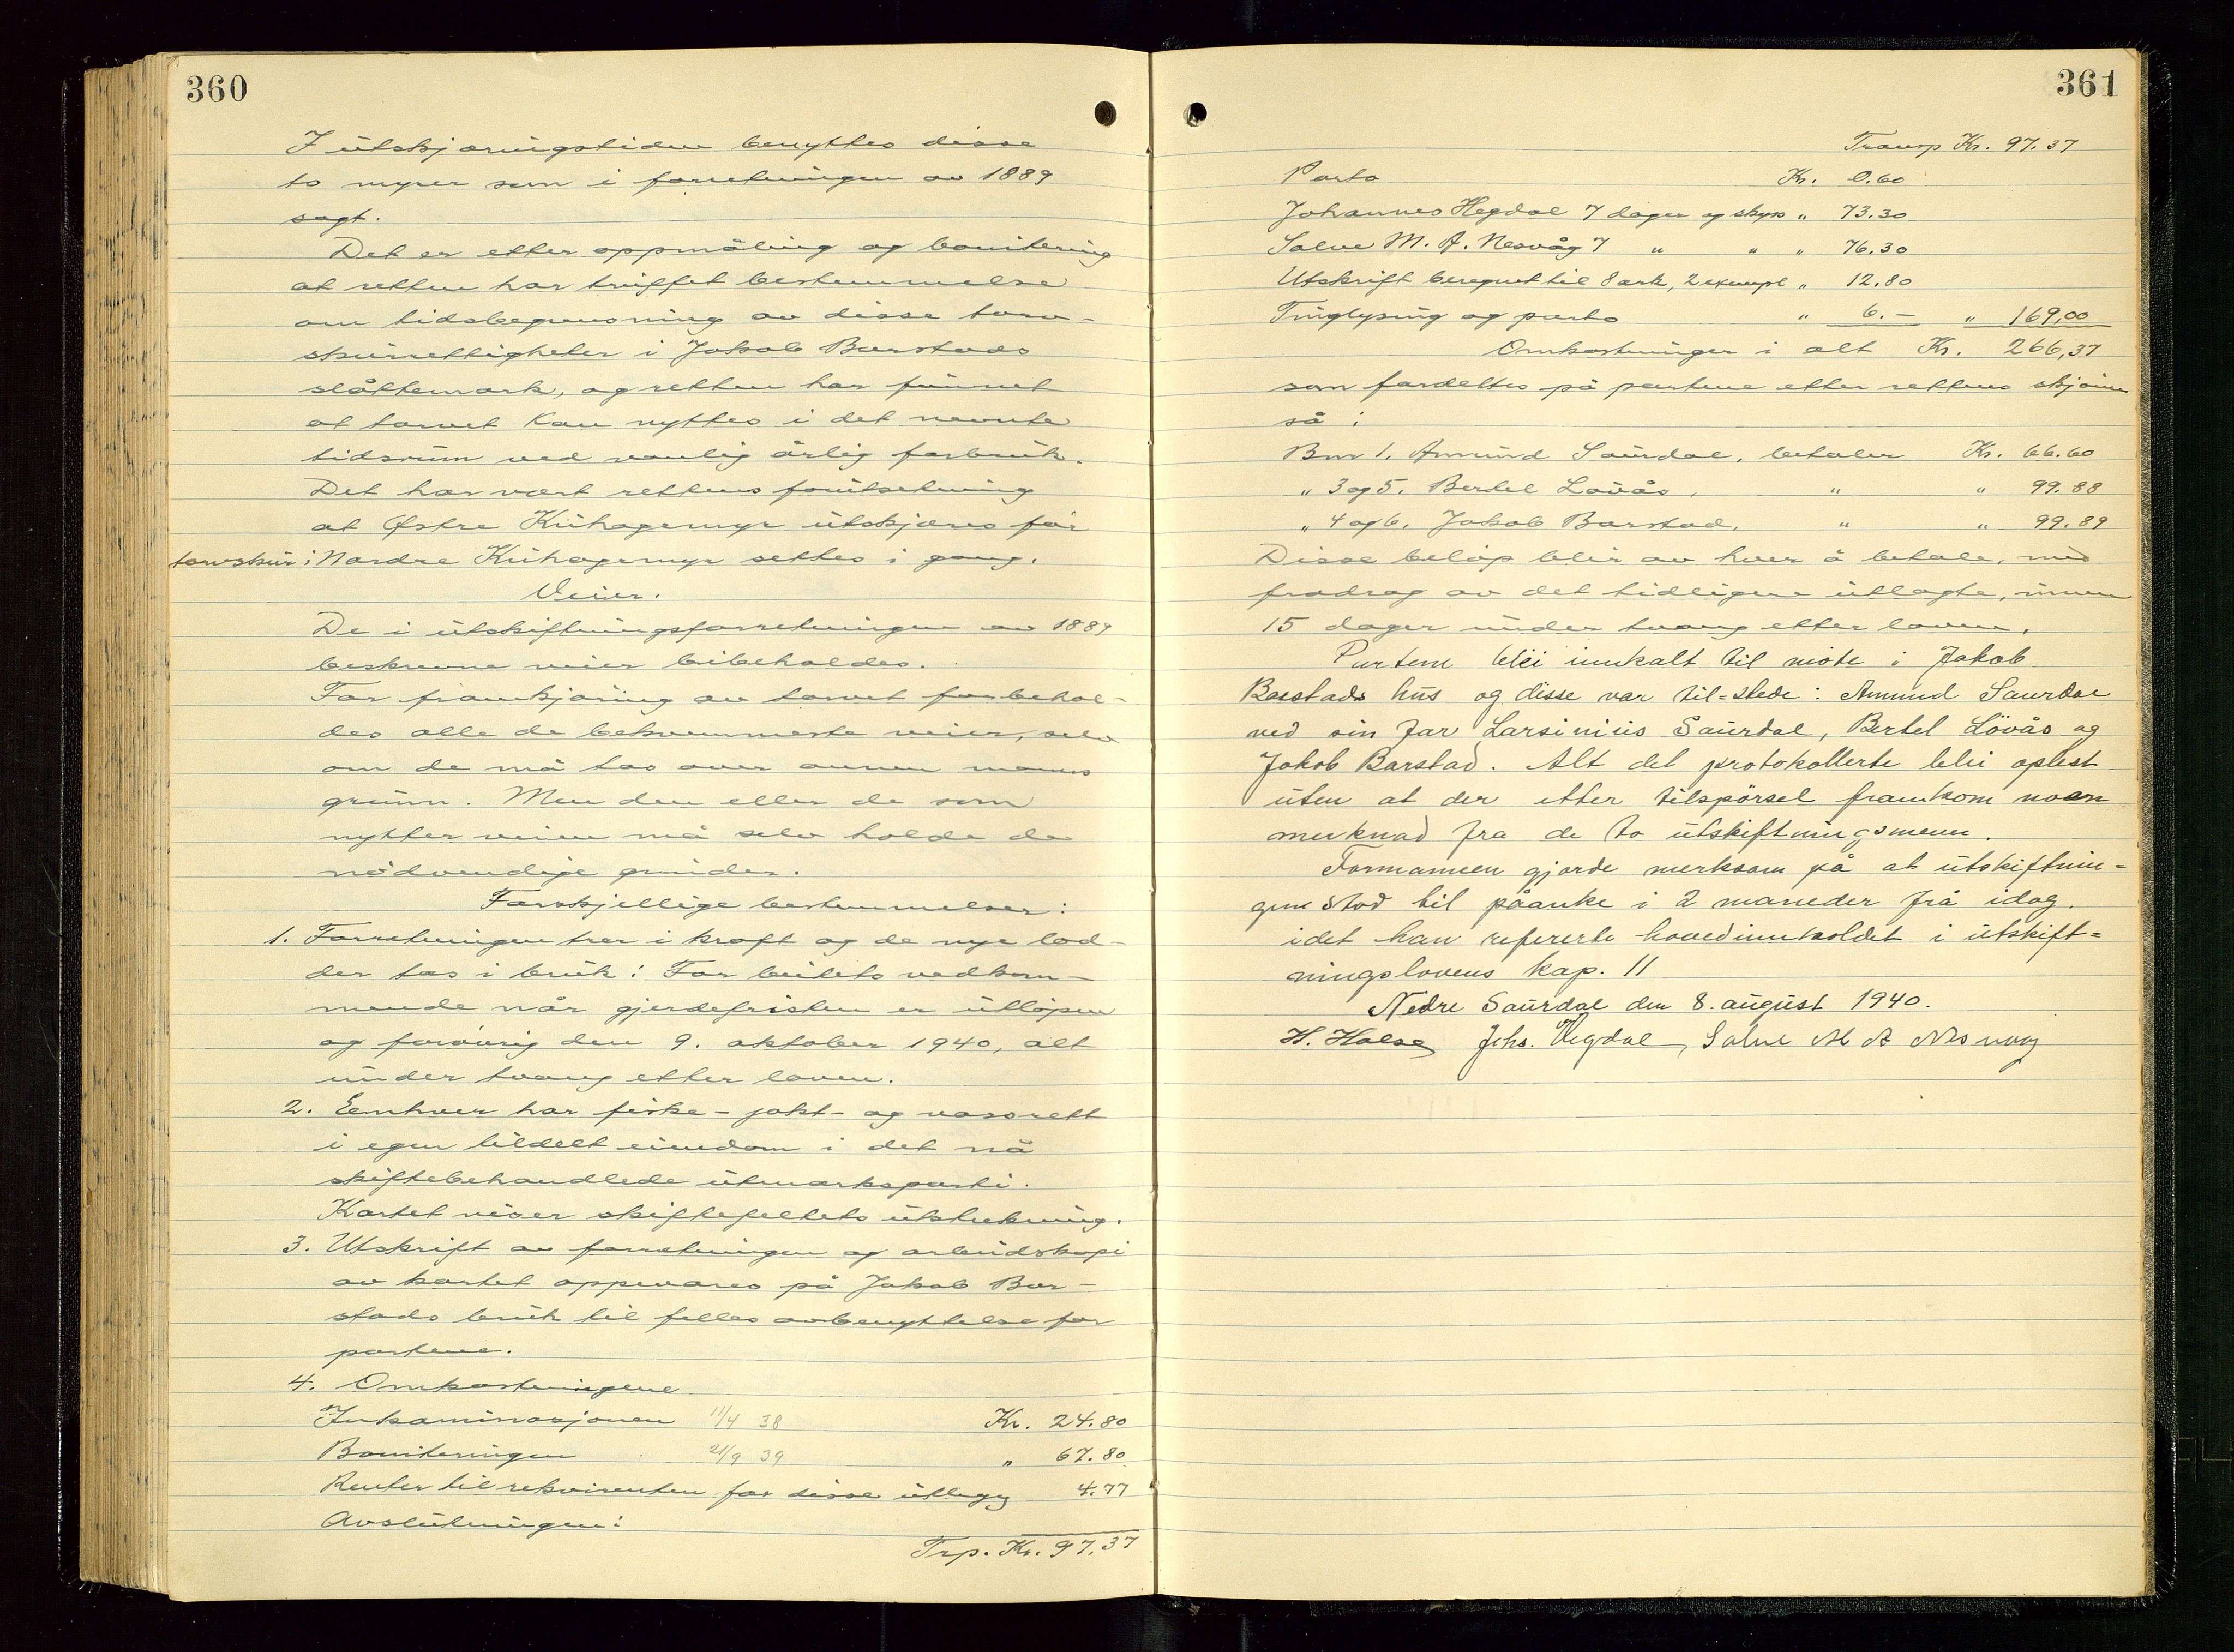 360
I utskjæringstiden benyttes disse
to myrer som i forretningen av 1889
sagt.
Det er etter oppmåling og bonitering
at retten har truffet bestemmelse
om tidsbegrensning av disse torv-
skurrettigheter i Jakob Barstads
slåttemark, og retten har funnet
at torvet kan nyttes i det nevnte
tidsrum ved vanlig årlig forbruk.
Det har vært rettens forutsetning
at Østre Kuhagemyr utskjæres før
torvskur i Nordre Kuhagemyr settes i gang.
Veier.
De i utskiftningsforretningen av 1889
beskrevne veier bibeholdes.
For framkjøring av torvet forbehol-
des alle de bekvemmeste veier, selv
om de må tas over annen manns
grunn. Men den eller de som
nytter veien må selv holde de
nödvendige grinder.
Forskjellige bestemmelser:
1. Forretningen trer i kraft og de nye lod-
der tas i bruk: For beitets vedkom-
mende når gjerdefristen er utlöpen
og forövrig den 9. oktober 1940, alt
under tvang etter loven.
2. Eenhver har fiske- jakt- og vassrett
i egen tildelt eiendom i det nå
skiftebehandlede utmarksparti.
Kartet viser skiftefeltets utstrekning.
3. Utskrift av forretningen og arbeidskopi
av kartet oppevares på Jakob Bar-
stads bruk til felles avbenyttelse for
partene.
4. Omkostningene
Inkaminasjonen 11/4 38 Kr. 24.80
Boniteringen 21/9 39 " 67.80
Renter til rekvirenten for disse utlegg 4.77
Avslutningen:
Trp. Kr. 97,37
361
Transp Kr. 97.37
Porto Kr. 0.60
Johannes Hegdal 7 dager og skyss " 73.30
Salve M. A. Nesvåg 7 " " " 76.30
Utskrift beregnet til 8 ark, 2 exempl " 12.80
Tinglysing og porto " 6.- " 169,00
Omkostninger i alt Kr. 266,37
som fordeltes på partene etter rettens skjönn
så:
Bnr 1. Amund Saurdal, betaler Kr. 66.60
" 3 og 5. Bertel Lövås, " " 99.88
" 4 og 6. Jakob Barstad, " " 99.89
Disse belöp blir av hver å betale, med
fradrag av det tidligere utlagte, innen
15 dager under tvang etter loven.
Partene blei innkalt til möte i Jakob
Barstads hus og disse var til=stede: Amund Saurdal
ved sin far Larsinius Saurdal, Bertel Lövås og
Jakob Barstad. Alt det protokollerte blei oplest
uten at der etter tilspörsel framkom noen
merknad fra de to utskiftningsmenn.
Formannen gjorde merksom på at utskiftnin=
gene stod til påanke i 2 maneder frå idag.
idet han refererte hovedinnholdet i utskift=
ningslovens kap. 11
Nedre Saurdal den 8. august 1940.
H. Halse Johs. Hegdal, Salve M A Nesvåg